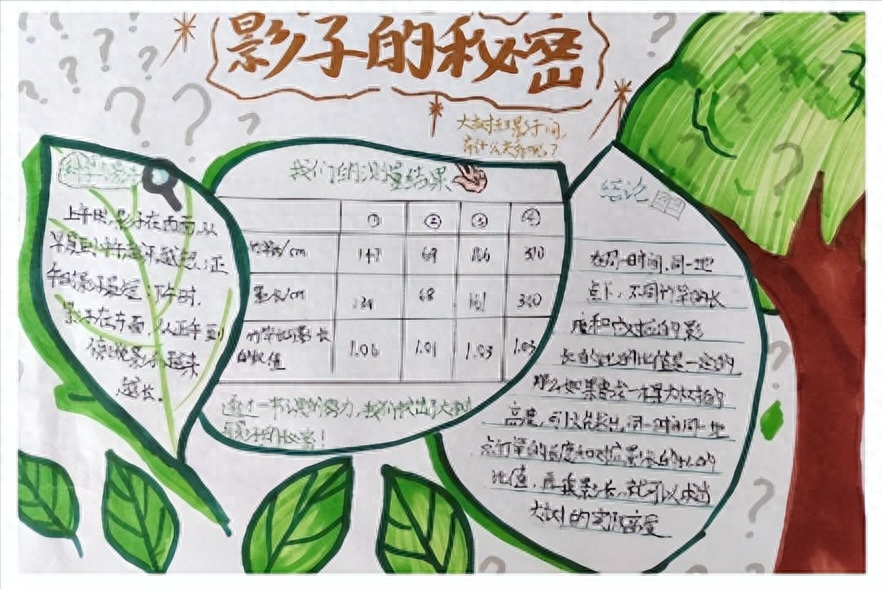 影子的秘密
大树和影子间,
有什么关系呢？
上午时,影子在西面,从
早晨到中午影子越来越短;正
午的影子最短;下午时,
影子在东面,从正午到
傍晚影子越来
越长.
我们的测量结果
① ② ③ ④
竹竿长/cm 147 69 310
影长/cm 68 161 300
竹竿长与影长
的比值 1.06 1.01 1.03 1.03
通过一步步的努力,我们找出了大树
与影子的秘密!
结论
在同一时间,同一地
点下,不同竹竿的长
度和它对应的影
长的比的比值是一定的.
那么如果要求一棵大树的
高度,可以先求出同一时间同一地
点竹竿的长度和对应影长的比的
比值,再乘影长,就可以求出
大树的实际高度